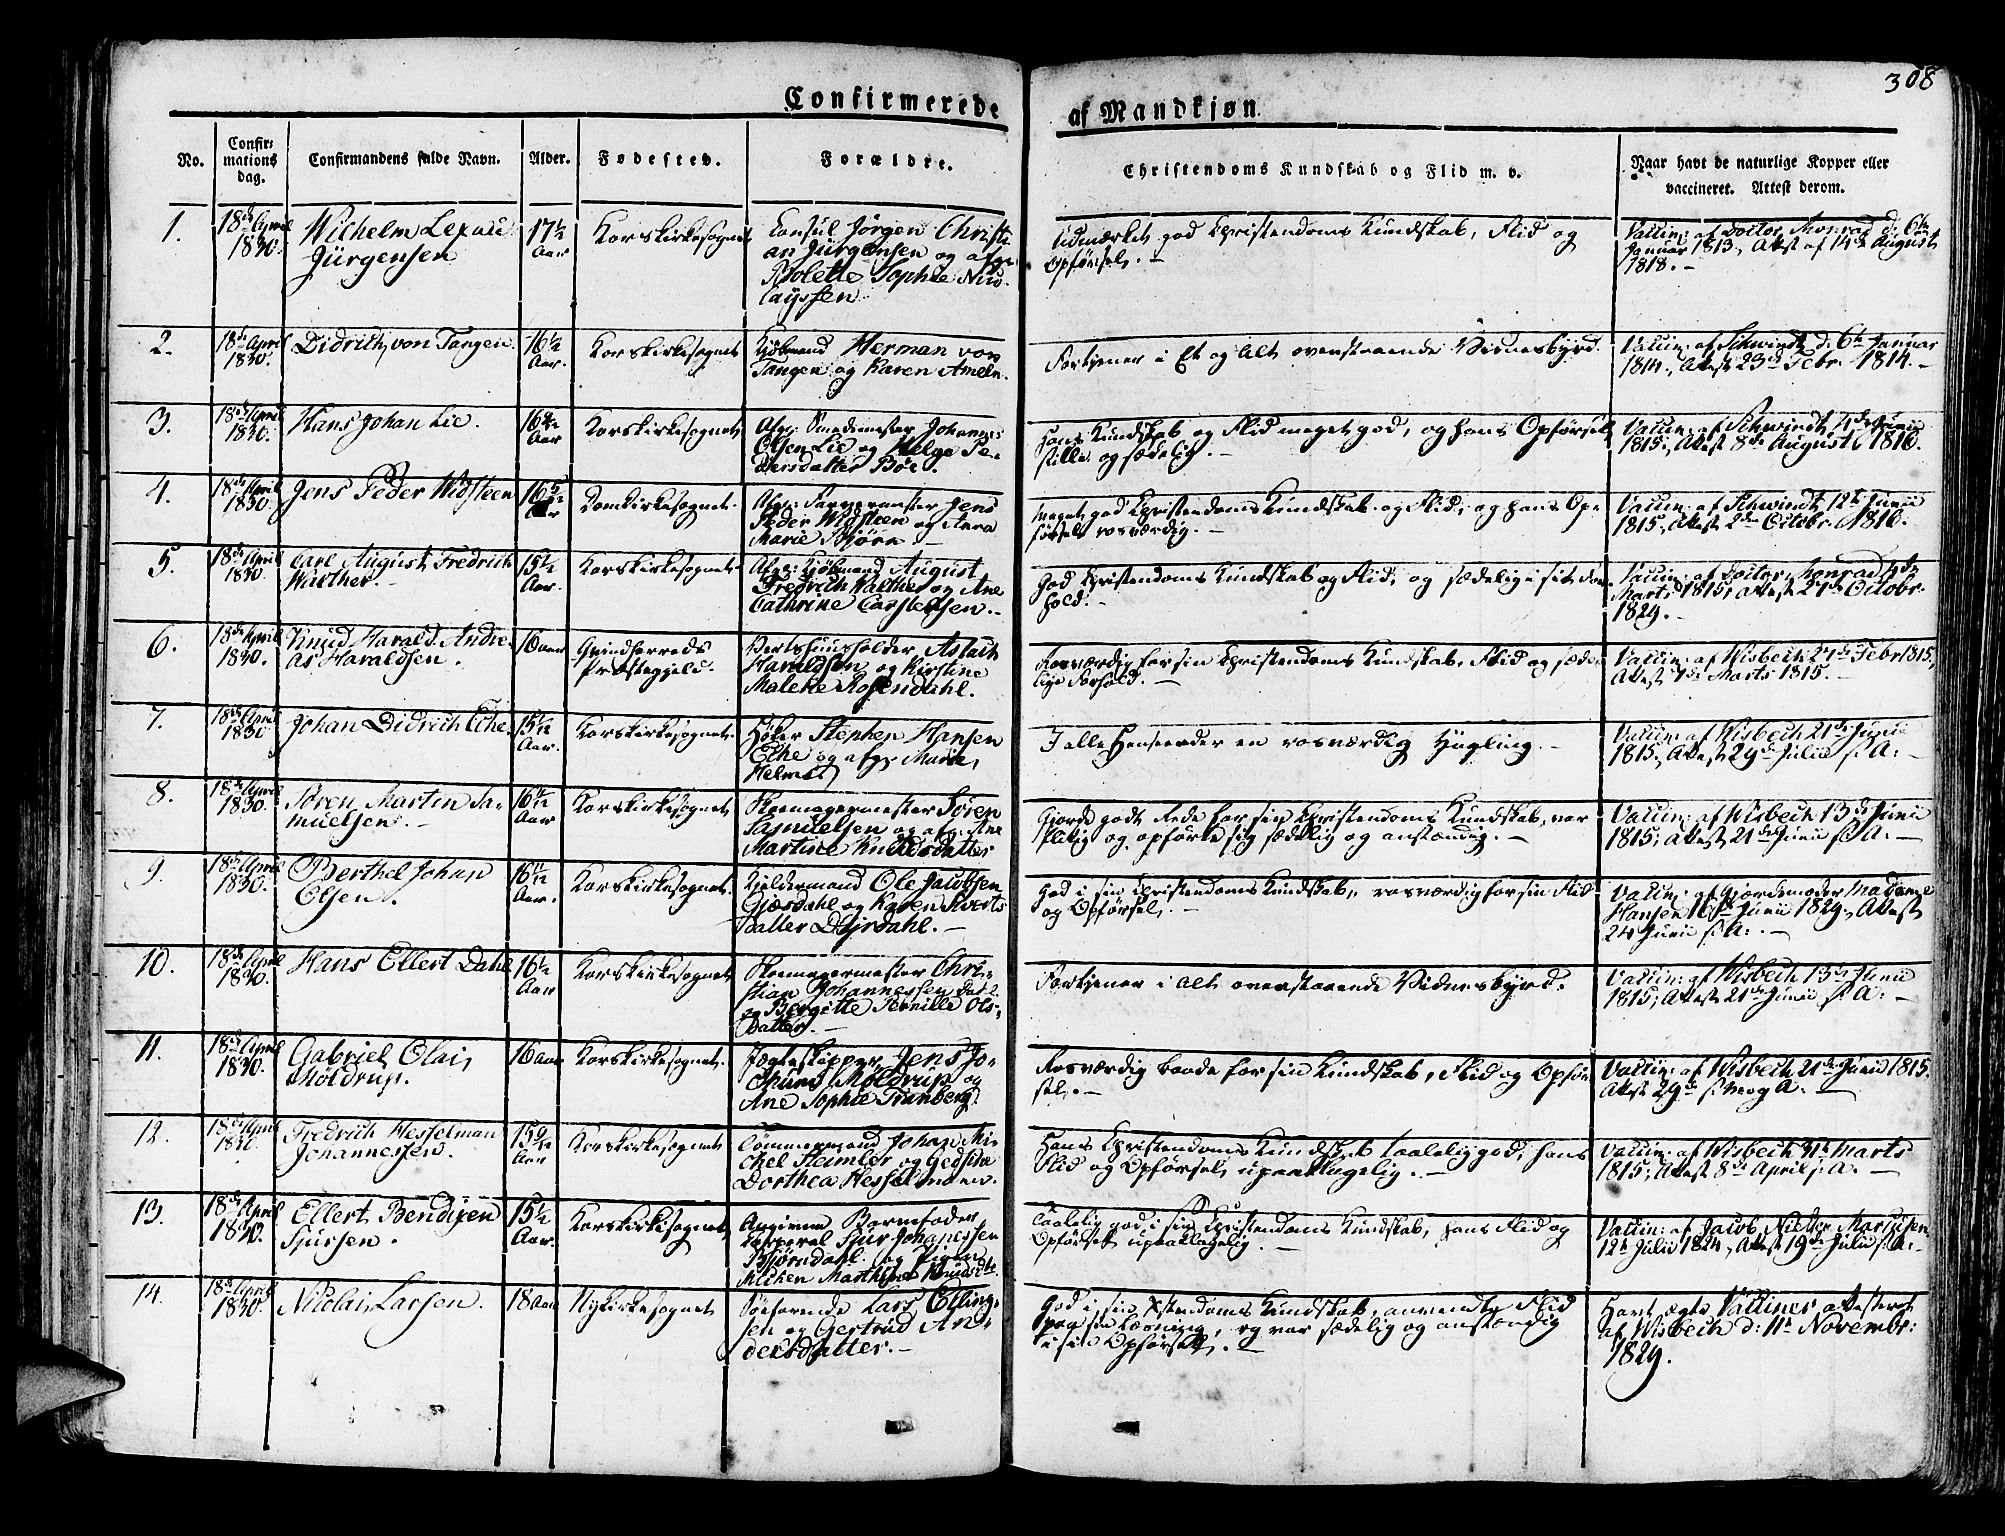 308
Confirmerede af Mandkjøn.
No.
Confir-
mations
dag.
Confirmandens fulde Navn.
Alder.
Fødested.
Forældre.
Christendoms Kundskab og Flid m. v.
Naar havt de naturlige Kopper eller
vaccineret. Attest derom.
1.
18de April
1830.
Wilhelm Lexau
Jürgensen
17½
Aar
Korskirkesognet
Consul Jørgen Christi-
an Jürgensen og afg.
Sophie Nico-
layssen.
Udmærket god Christendoms Kundskab, Flid og
Opførsel. -
Vaccin: af Doctor Monrad d. 6te
Januar 1813, Attest af 14de August
1818. -
2.
18de April
1830.
Didrich von Tangen
16½
Aar.
Korskirkesognet
Kjøbmand Herman von
Tangen og Karen Ameln.
Fortjener i Et og Alt ovenstaaende Vidnesbyrd.
Vaccin: af Schwindt d. 6te Januar
1814, Attest 23de Febr. 1814. -
3.
18de April
1830.
Hans Johan Lie.
Aar
Korskirkesognet.
Afg: Smedemester Johannes
Olsen Lie og Helga Pe-
dersdatter Bøe
Hans Kundskab og Flid meget god, og hans Opførsel
stille og sædelig. -
Vaccin: af Schwindt, Junii
1815, Attest 8de August 1816.
4.
18de April
1830.
Jens Peder Widsteen
16 5/12
Aar
Domkirkesognet.
Afg: Farvermester Jens
Peder Widsteen og Anna
Marie Bjørn. -
Meget god Christendoms Kundskab og Flid, og hans Op-
førsel rosværdig. -
Vaccin: af Schwindt, 12te Junii
1815, Attest 2den Octobr. 1816.
5.
18de April
1830.
Carl August Fredrich
Walther. -
15½
Aar.
Korskirkesognet.
Afg: Kjøbmand August
Fredrich Walther og Ane
Cathrine Carstensen. -
God Christendoms Kundskab og Flid, og sædelig i sit For-
hold. -
Vaccin: af Doctor Monrad
Marts 1815, Attest 27de Octobr.
1829. -
6.
18de April
1830.
Knud Harald Andre-
as Haraldsen.
16 Aar
Qvindherreds
Præstegjeld.
Vertshuusholder Aslach
Haraldsen og Kirstine
Malene Rosendahl.
Rosværdig for sin Christendoms Kundskab, Flid og sæde-
lige Forhold. -
Vaccin: af Wisbech 27de Febr 1815,
Attest 7de Marts 1815. -
7.
18de April
1830
Johan Didrich Eche
Aar.
Korskirkesognet.
Høker Stephen Hansen
Eche og afg. Maria
Helmich
I alle Henseender en rosværdig Yngling. -
Vaccin: af Wisbech 21de Junii
1815, Attest 29de Julii s: A: -
8.
18de April
1830.
Søren Martin Sa-
muelsen. -
Aar.
Korskirkesognet
Skomagermester Søren
Samuelsen og afg. Ane
Martine Knudsdatter
Gjorde godt Rede for sin Christendoms Kundskab, var
flittig og opførte sig sædelig og anstændig. -
Vaccin: af Wisbech 13de Junii
1815, Attest 21de Junii s: A: -
9.
18de April
1830.
Berthel Johan
Olsen.
Aar.
Korskirkesognet.
Kjeldermand Ole Jacobsen
Giæsdahl og Karen Siverts-
datter Dyrdahl. -
God i sin Christendoms Kundskab, rosværdig for sin Flid
og Opførsel. -
Vaccin: af Gjordemoder Madame
Hansen 16de Junii 1829, Attest
24 Junii s: A: -
10.
18de April
1830.
Hans Ellert Dahl
16½
Aar
Korskirkesognet
Skomagermester Chri-
stian Johannessen Dahl
og Bergitte Pernille Ols-
datter. -
Fortjener i Alt ovenstaaende Vidnesbyrd.
Vaccin: af Wisbech 13de Junii
1815, Attest 21de Junii s: A: -
11.
18de April
1830.
Gabriel Olai
Møldrup.
16 Aar
Korskirkesognet.
Jægteskipper Jens Jo-
chums Møldrup og
Ane Sophie Granberg.
Rosværdig baade for sin Kundskab, Flid og Opfør-
sel. -
Vaccin: af Wisbech 21de Junii 1815.
Attest 29de s: M og A: -
12.
18de April
1830.
Fredrich Hesselman
Johannessen.
Aar
Korskirkesognet
Tømmermand Johan Mi-
chel Steimler og Gedsida
Dorthea Hesselman.
Hans Christendoms Kundskab taalelig god, hans
Flid og Opførsel upaaklagelig. -
Vaccin: af Wisbech Marts
1815, Attest 8de April s: A: -
13.
18de April
1830.
Ellert Bendixen
Sjursen.
15½
Aar.
Korskirkesognet
Angivne Barnefader
Corporal Sjur Johanessen
Bjørndahl og Pigen
Marthine Knudsdtr.
Taalelig god i sin Christendoms Kundskab, hans Flid og
Opførsel upaaklagelig. -
Vaccin: af Jacob Nielsen
12te Julii 1824, Attest 19de Julii s: A: -
14.
18de April
1830.
Nicolai Larsen.
18 Aar
Nykirkesognet
Søefarende Lars Elling-
sen og Gertrud An-
dersdatter. -
God i sin Xstendoms Kundskab, anvendte Flid
paa sin Læsning, og var sædelig og anstændig
i sin Opførsel. -
Havt ægte Vacciner attesteret
af Wisbech d: 11te Novembr:
1829.